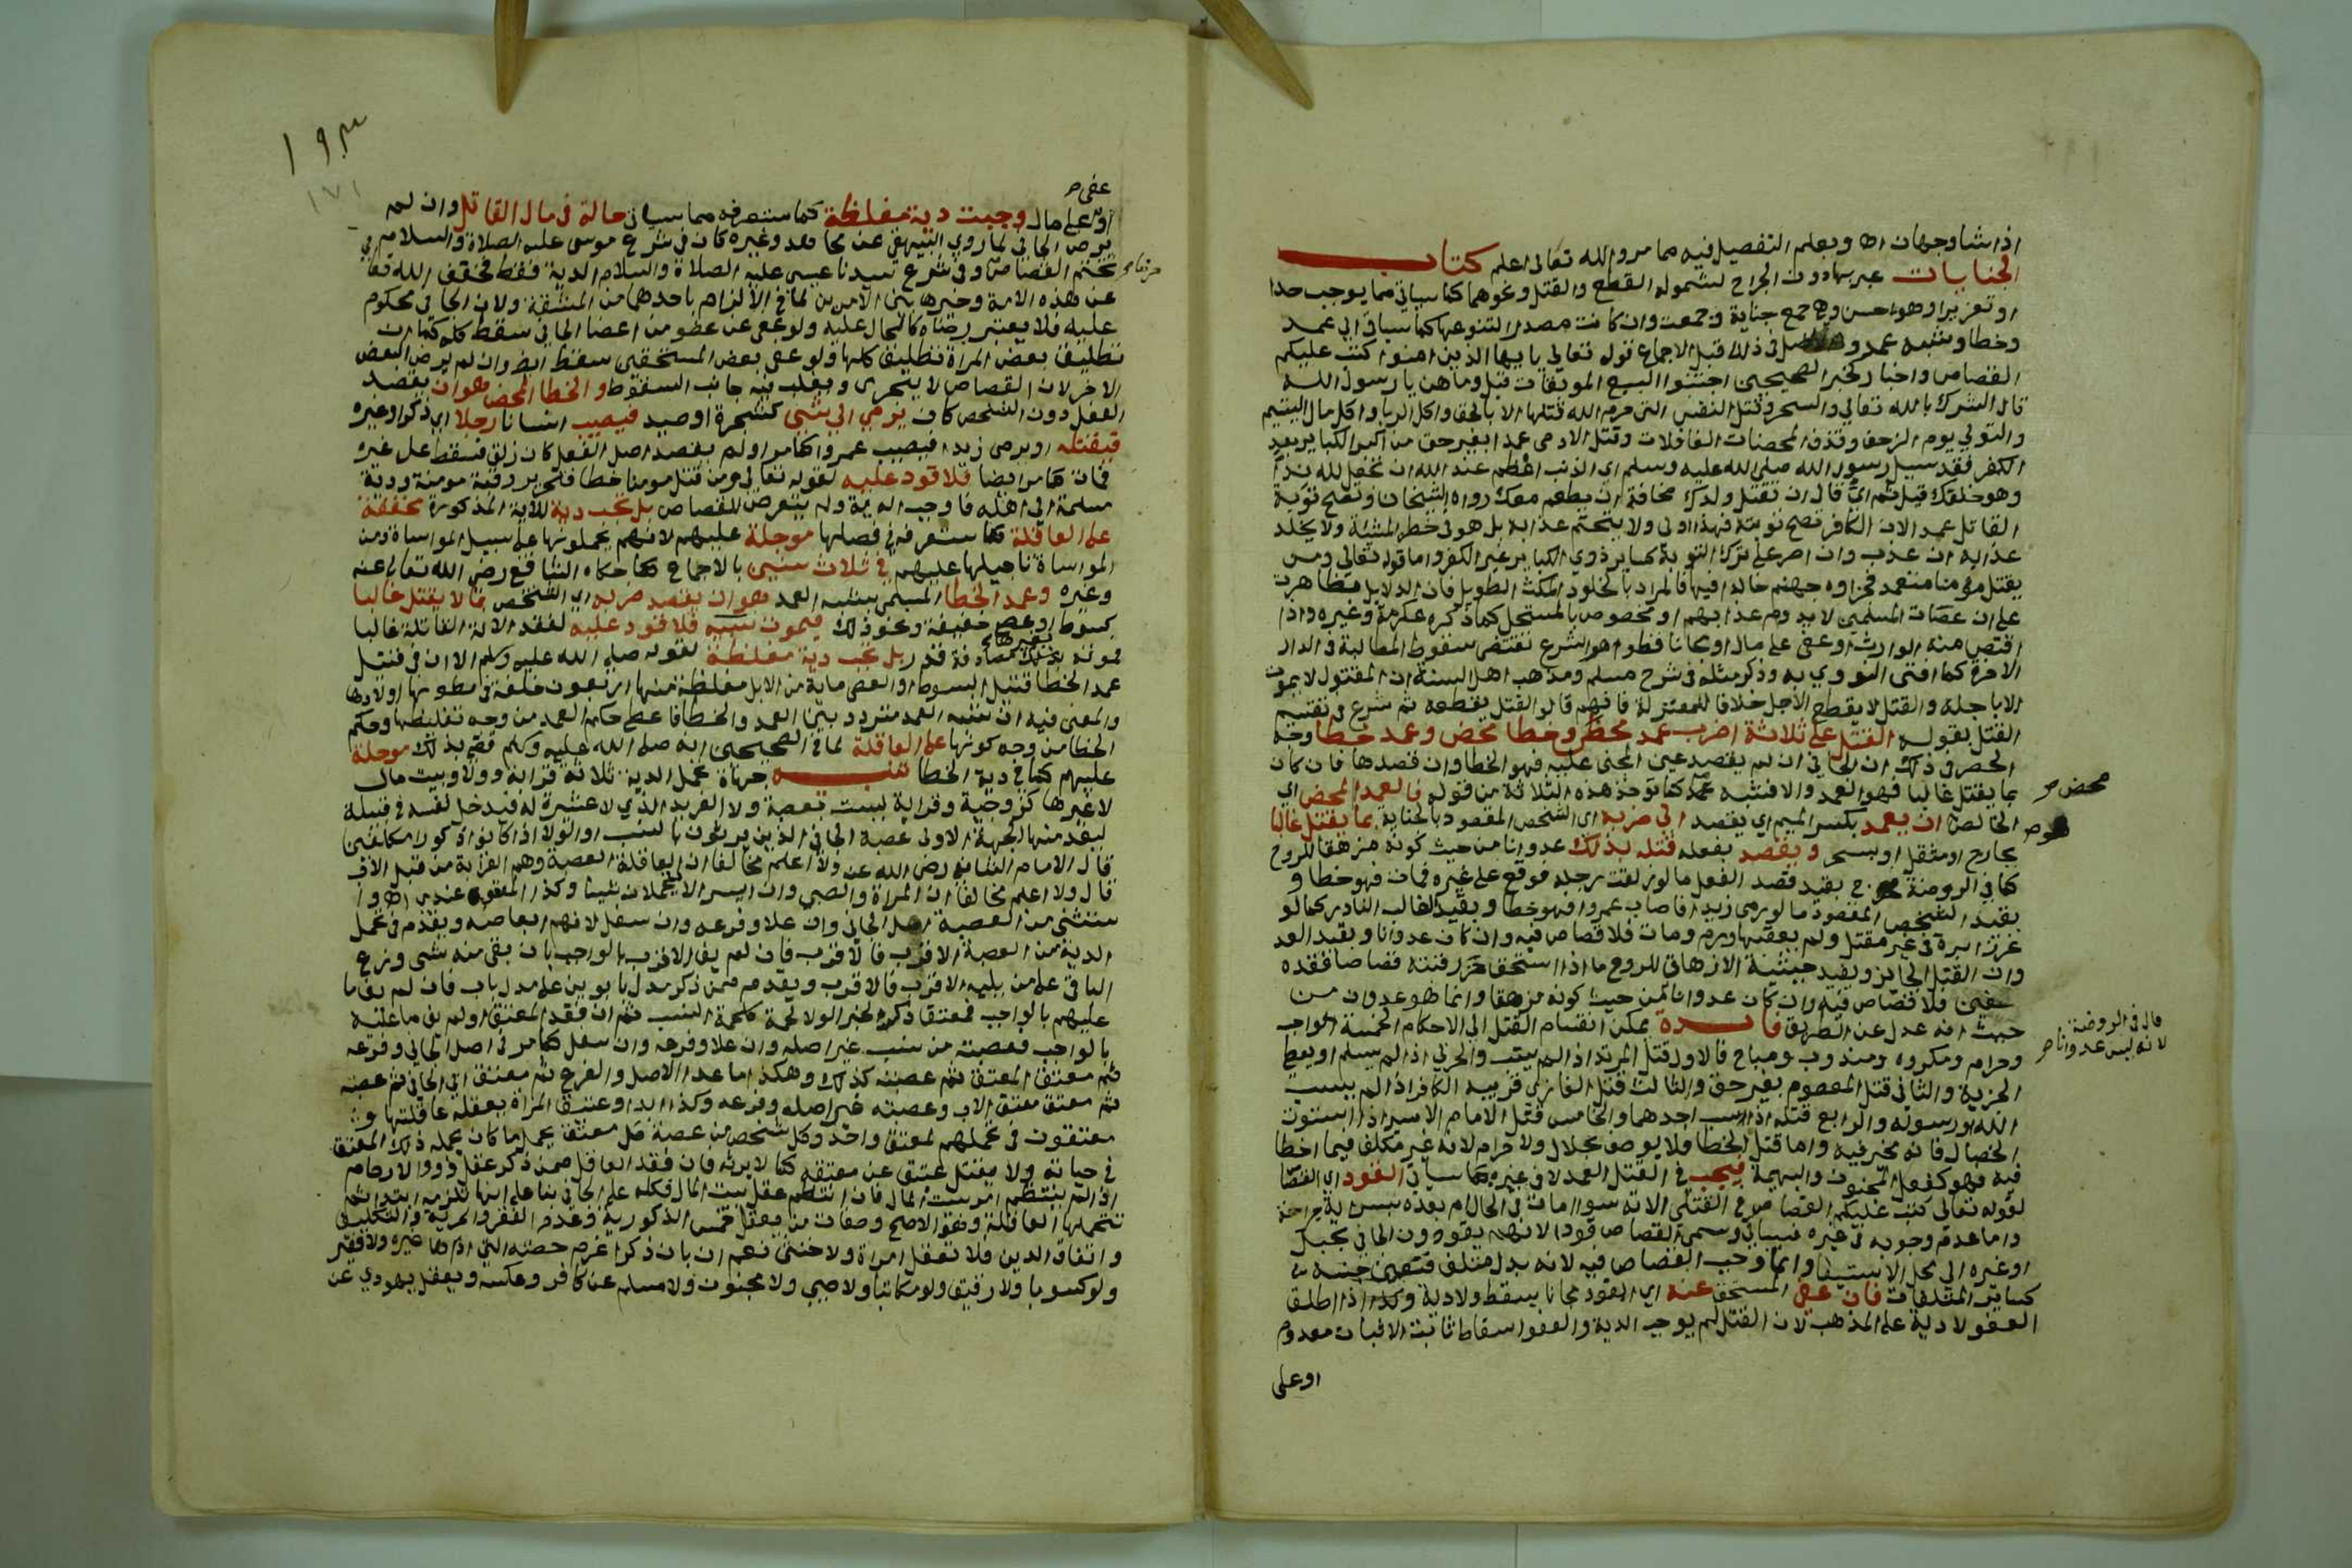 اذا شا وجهان اه ويعلم التفصيل فيه مما مر والله تعالى اعلم كتاب
الجنايات عبر بها دون الجراح لشموله القطع والقتل ونحوهما كما سياتي مما يوجب حدا
او تعزيرا وهو احسن وهي جمع جناية وجمعت وان كانت مصدرا لتنوعها كما سياتي الى عمد
وخطا وشبه عمد والاصل في ذلك قبل الاجماع قوله تعالى يا ايها الذين امنوا كتب عليكم
القصاص واخبار كخبر الصحيحين اجتنبوا السبع الموبقات قيل وما هن يا رسول الله
قال الشرك بالله تعالى والسحر وقتل النفس التي حرم الله قتلها الا بالحق واكل الربا واكل مال اليتيم
والتولي يوم الزحف وقذف المحصنات الغافلات وقتل الادمي عمدا بغير حق من اكبر الكباير بعد
الكفر فقد سيل رسول الله صلى الله عليه وسلم اي الذنب اعظم عند الله ان تجعل لله ندا
وهو خلقك قيل ثم اي قال ان تقتل ولدك مخافة ان يطعم معك رواه الشيخان وتصح توبة
القاتل عمدا لان الكافر تصح توبته فهذا اولى ولا يتحتم عذابه بل هو في خطر المشيئة ولا يخلد
عذابه ان عذب وان اصر على ترك التوبة كساير ذوي الكباير غير الكفر واما قوله تعالى ومن
يقتل مومنا متعمدا فجزاوه جهنم خالدا فيها فالمراد بالخلود المكث الطويل فان الدلايل متظاهرة
على ان عصات المسلمين لا يدوم عذابهم او مخصوص بالمستحل كما ذكره عكرمة وغيره واذا
اقتص منه الوارث او عفى على مال او مجانا فظواهر الشرع تقتضي سقوط المطالبة في الدار
الاخرة كما افتى به النووي وذكر مثله في شرح مسلم ومذهب اهل السنة ان المقتول لا يموت
الا باجله والقتل لا يقطع الاجل خلافا للمعتزلة فانهم قالوا القتل يقطعه ثم شرع في تقسيم
القتل بقوله القتل على ثلاثة اضرب عمد محض وخطا محض وعمد خطا وجه
الحصر في ذلك ان الجاني ان لم يقصد عين المجني عليه فهو الخطا وان قصدها فان كان
بما يقتل غالبا فهو العمد والا فشبه عمد كما توخذ هذه الثلاثة من قوله فالعمد المحض اي
محض صح
الخالص ان يعمد بكسر الميم اي يقصد الى ضربه اي الشخص المقصود بالجناية بما يقتل غالبا
بجارح او مثقل او سحر ويقصد بفعله قتله بذلك عدوانا من حيث كونه مزهقا للروح
كما في الروضة فخرج بقيد قصد الفعل ما لو زلقت رجله فوقع على غيره فمات فهو خطا و
بقيد الشخص المقصود ما لو رمى زيدا فاصاب عمروا فهو خطا وبقيد الغالب النادر كما لو
غرز ابرة في غير مقتل ولم يعقبها ورم ومات فلا قصاص فيه وان كان عدوانا وبقيد العد
وان القتل الجايز وبقيد حيثية الازهاق للروح ما اذا استحق حز رقبته قصاصا فقده
نصفين فلا قصاص فيه وان كان عدوانا من حيث كونه مزهقا وانما هو عدوان من
حيث انه عدل عن الطريق فايدة يمكن انقسام القتل الى الاحكام الخمسة الواجب
قال في الروضة
لانه ليس عدوانا صح
وحرام ومكروه ومندوب ومباح فالاول قتل المرتد اذا لم يتب والحربي اذا لم يسلم او يعط
الجزية والثاني قتل المعصوم بغير حق والثالث قتل الغازي قريبه الكافر اذا لم يسب
الله ورسوله والرابع قتله اذا سب احدهما والخامس قتل الامام الاسير اذا استوت
الخصال فانه مخير فيه واما قتل الخطا فلا يوصف بحلال ولا حرام لانه غير مكلف فيما اخطا
فيه فهو كفعل المجنون والبهيمة فيجب في القتل العمد لا في غيره كما سياتي القود اي القصاص
لقوله تعالى كتب عليكم القصاص في القتلى الاية سوا مات في الحال ام بعده بسراية جراحة
واما عدم وجوبه في غيره فسياتي وسمي القصاص قودا لانهم يقودون الجاني بحبل
او غيره الى محل الاستيفا وانما وجب القصاص فيه لانه بدل متلف فتعين جنسه
كساير المتلفات فان عفى المستحق عنه اي القود مجانا سقط ولا دية وكذا اذا اطلق
العفو لا دية على المذهب لان القتل لم يوجب الدية والعفو اسقاط ثابت لا اثبات معدوم
او على
١٩٣
١٧١
عفى صح
او على مال وجبت دية مغلظة كما ستعرفه مما سياتي حالة في مال القاتل وان لم
يرض الجاني لما روي البيهقي عن مجاهد وغيره كان في شرع موسى عليه الصلاة والسلام
تحتم القصاص وفي شرع سيدنا عيسى عليه الصلاة والسلام الدية فقط فخفف الله تعا
عن هذه الامة وخيرها بين الامرين لما في الالزام باحدهما من المشقة ولان الجاني محكوم
عليه فلا يعتبر رضاه كالمحال عليه ولو عفى عن عضو من اعضا الجاني سقط كله كما ان
تطليق بعض المراة تطليق كلها ولو عفى بعض المستحقين سقط ايضا وان لم يرض البعض
الاخر لان القصاص لا يتجزى ويغلب فيه جانب السقوط والخطا المحض هو ان يقصد
الفعل دون الشخص كان يرمي الى شي كشجرة او صيد فيصيب انسانا رجلا اي ذكرا او غيره
فيقتله او يرمي زيدا فيصيب عمروا كما مر او لم يقصد اصل الفعل كان زلق فسقط على غيره
فمات كما مر ايضا فلا قود عليه لقوله تعالى ومن قتل مومنا خطا فتحرير رقبة مومنة ودية
مسلمة الى اهله فاوجب الدية ولم يتعرض للقصاص بل تجب دية للاية المذكورة مخففة
على العاقلة كما ستعرفه في فصلها موجلة عليهم لانهم يحملونها على سبيل المواساة ومن
المواساة تاجيلها عليهم في ثلاث سنين بالاجماع كما حكاه الشافعي رضي الله تعالى عنه
وغيره وعمد الخطا المسمى بشبه العمد هو ان يقصد ضربه اي الشخص بما لا يقتل غالبا
كسوط او عصى خفيفة ونحو ذلك فيموت بسببه فلا قود عليه لفقد الالة القاتلة غالبا
فموته بغيرها مصادفة قدر بل تجب دية مغلظة لقوله صلى الله عليه وسلم الا ان في قتيل
عمد الخطا قتيل السوط او العصى ماية من الابل مغلظة منها اربعون خلفة في بطونها اولادها
والمعنى فيه ان شبه العمد متردد بين العمد والخطا فاعطى حكم العمد من وجه تغليظها وحكم
الخطا من وجه كونها على العاقلة لما في الصحيحين انه صلى الله عليه وسلم قضى بذلك موجلة
عليهم كما في دية الخطا تنبيه جهات تحمل الدية ثلاثة قرابة وولا وبيت مال
لا غيرها كزوجية وقرابة ليست بعصبة ولا الفريد الذي لا عشيرة له فيدخل نفسه في قبيلة
ليعد منها الجهة الاولى عصبة الجاني الذين يرثون بالنسب او الولا اذا كانوا ذكورا مكلفين
قال الامام الشافعي رضي الله عنه ولا اعلم مخالفا ان العاقلة العصبة وهم القرابة من قبل الاب
قال ولا اعلم مخالفا ان المراة والصبي وان ايسرا لا يحملان شيئا وكذا المعتوه عندي اه و
يستثنى من العصبة اصل الجاني وان علا وفرعه وان سفل لانهم ابعاضه ويقدم في تحمل
الدية من العصبة الاقرب فالاقرب فان لم يف الاقرب بالواجب بان بقي منه شي وزع
الباقي على من يليه الاقرب فالاقرب ويقدم ممن ذكر مدل بابوين على مدل باب فان لم يف ما
عليهم بالواجب فمعتق ذكر لخبر الولا لحمة كلحمة النسب ثم ان فقد المعتق او لم يف ما عليه
بالواجب فعصبته من نسب غير اصله وان علا وفرعه وان سفل كما مر في اصل الجاني وفرعه
ثم معتق المعتق ثم عصبته كذلك وهكذا ما عدا الاصل والفرع ثم معتق ابي الجاني ثم عصبته
ثم معتق معتق الاب وعصبته غير اصله وفرعه وكذا ابدا وعتيق المراة يعقله عاقلتها و
معتقون في تحملهم كمعتق واحد وكل شخص من عصبة كل معتق يحمل ما كان يحمله ذلك المعتق
في حياته ولا يعقل عتيق عن معتقه كما لا يرثه فان فقد العاقل ممن ذكر عقل ذووا الارحام
اذا لم ينتظم امر بيت المال فان انتظم عقل بيت المال فكله على الجاني بنا على انها تلزمه ابتدا ثم
تتحملها العاقلة وهو الاصح وصفات من يعقل خمس الذكورية وعدم الفقر والحرية والتكليف
واتفاق الدين فلا تعقل امراة ولا خنثى نعم ان بان ذكرا غرم حصته التي اداها غيره ولا فقير
ولو كسوبا ولا رقيق ولو مكاتبا ولا صبي ولا مجنون ولا مسلم عن كافر وعكسه ويعقل يهودي عن